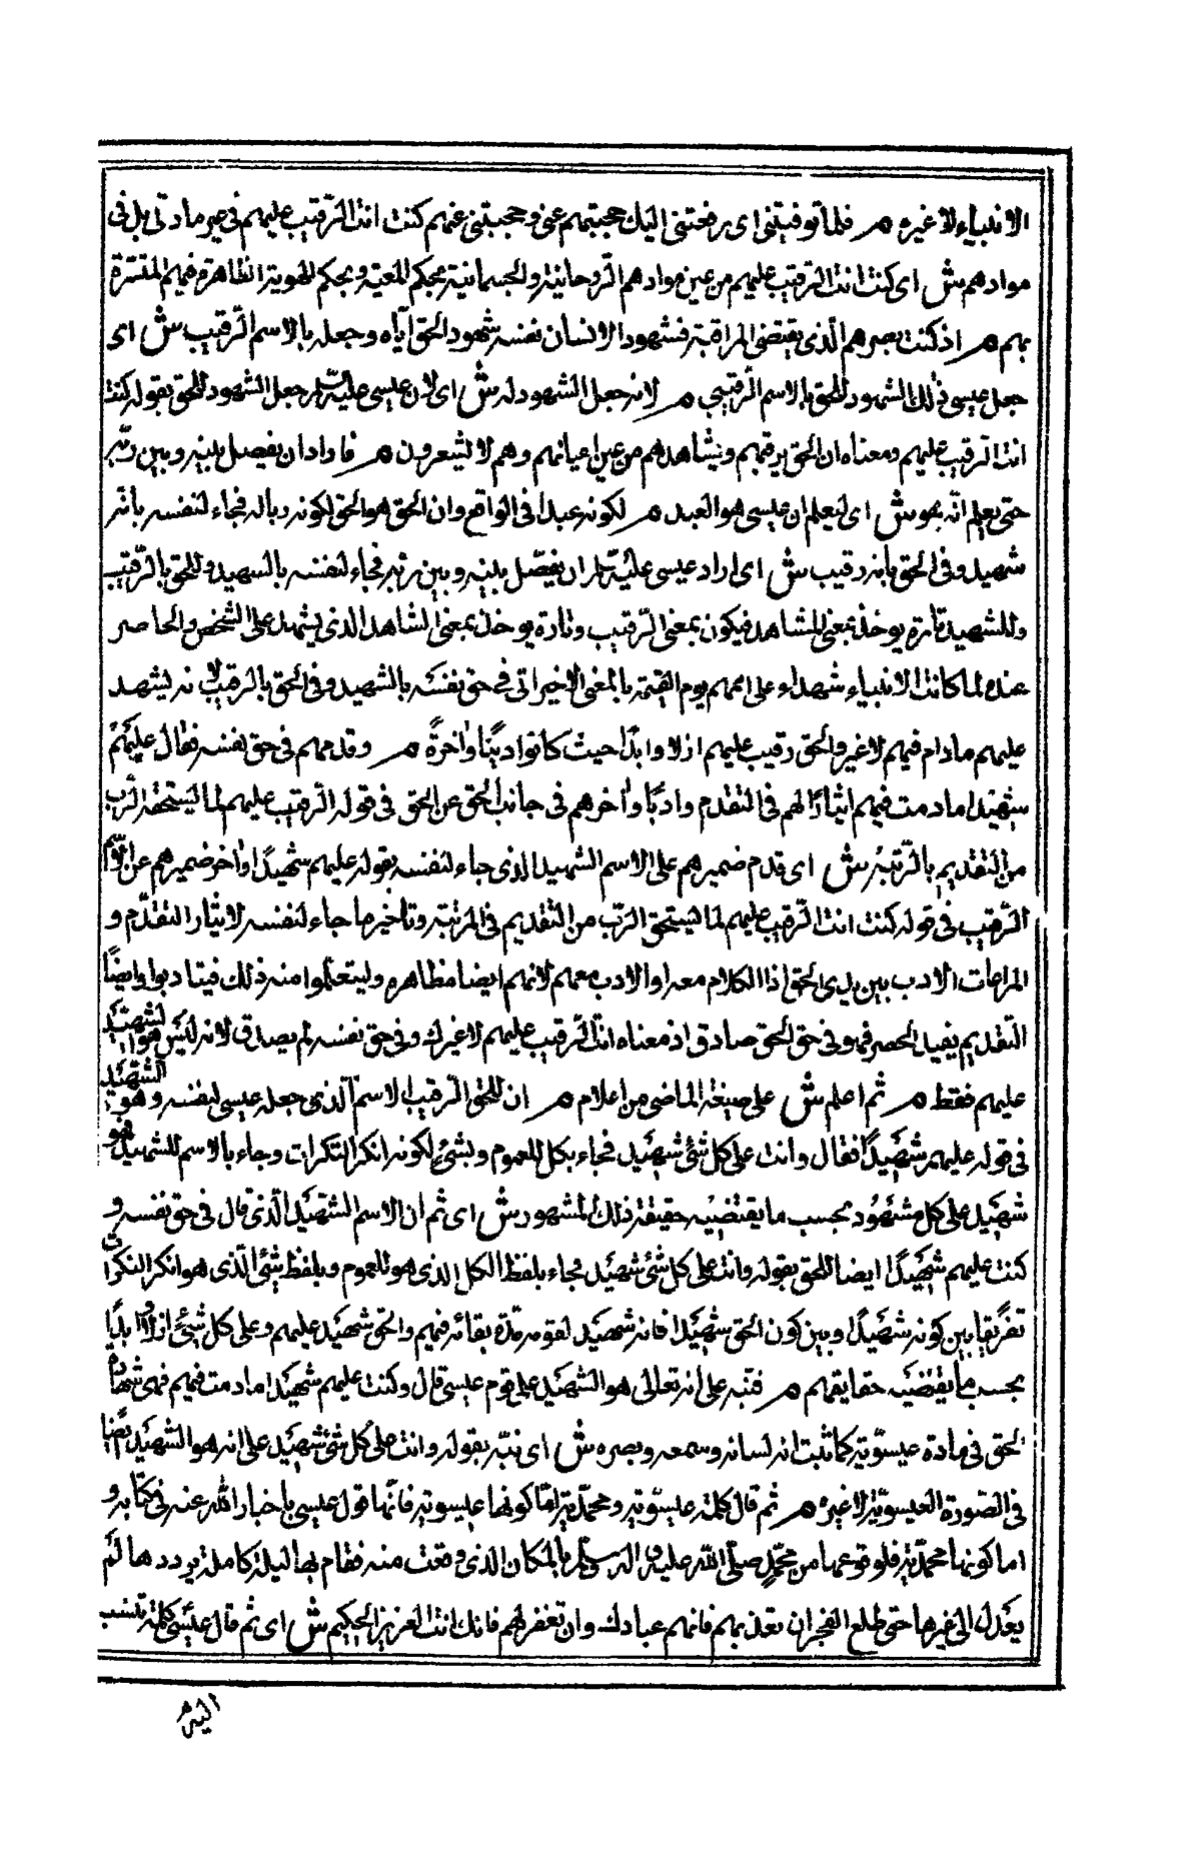 الانبياء لا غيره م فلما توفيتنى اى رفعتنى اليك حجبتهم عنى و حجبتنى عنهم كنت انت الرقيب عليهم فى غير مادتى بل فى
موادهم ش اى كنت انت الرقيب عليهم من عين موادهم الروحانية والجسمانية بحكم المعية و بحكم الهوية الظاهرة فيهم المتسترة
بهم م اذ كنت بصرهم الذى يقتضى المراقبة فشهود الانسان نفسه شهود الحق اياه وجعله بالاسم الرقيب ش اى
جعل عيسى ذلك الشهود للحق بالاسم الرقيب م لانه جعل الشهود له ش اى لان عيسى عليه السلام جعل الشهود للحق بقوله كنت
انت الرقيب عليهم ومعناه ان الحق يرقبهم ويشاهدهم من عين اعيانهم وهم لا يشعرون م فاراد ان يفصل بينه وبين ربه
حتى يعلم انه هو ش اى ليعلم ان عيسى هو العبد م لكونه عبدا فى الواقع وان الحق هو الحق لكونه ربا له فجاء لنفسه بانه
شهيد وفى الحق بانه رقيب ش اى اراد عيسى عليه السلام ان يفصل بينه وبين ربه فجاء لنفسه بالشهيد وللحق بالرقيب
وللشهيد تارة يوخذ بمعنى للشاهد فيكون بمعنى الرقيب وتارة يوخذ بمعنى الشاهد الذى يشهد على الشخص والحاضر
عنده لما كانت الانبياء شهداء على اممهم يوم القيمة بالمعنى الاخير اتى فى حق نفسه بالشهيد وفى الحق بالرقيب لانه يشهد
عليهم ما دام فيهم لا غير والحق رقيب عليهم ازلا وابدا حيث كانوا دينا وآخرة م وقدمهم فى حق نفسه فقال عليهم
شهيدا ما دمت فيهم ايثارا لهم فى التقدم وادبا واخرهم فى جانب الحق عن الحق فى قوله الرقيب عليهم لما يستحقه الرب
من التقديم بالرتبة ش اى قدم ضميرهم على الاسم الشهيد الذى جاء لنفسه بقوله عليهم شهيدا واخر ضميرهم عن الاسم
الرقيب فى قوله كنت انت الرقيب عليهم لما يستحق الرب من التقديم فى المرتبة وتاخير ما جاء لنفسه لايثار التقدم و
المراعات الادب بين يدى الحق اذ الكلام معه او الادب معهم لانهم ايضا مظاهره وليتعلموا منه ذلك فيتادبوا وايضا
التقديم يفيد الحصر فهو فى حق الحق صادق اذ معناه انت الرقيب عليهم لا غيرك وفى حق نفسه لم يصدق لانه ليس هو الشهيد
عليهم فقط م ثم اعلم ش على صيغة الماضى من اعلام م ان للحق الرقيب الاسم الذى جعله عيسى لنفسه وهو الشهيد
فى قوله عليهم شهيدا فقال وانت على كل شئ شهيد فجاء بكل للعموم وبشئ لكونه انكر النكرات وجاء بالاسم الشهيد فهو
شهيد على كل مشهود بحسب ما يقتضيه حقيقة ذلك المشهود ش اى ثم ان الاسم الشهيد الذى قال فى حق نفسه و
كنت عليهم شهيدا ايضا للحق بقوله وانت على كل شئ شهيد فجاء بلفظ الكل الذى هو للعموم وبلفظ شئ الذى هو انكر النكرات
تفريقا بين كونه شهيدا وبين كون الحق شهيدا فانه شهيد لقومه مدة بقائه فيهم والحق شهيد عليهم وعلى كل شئ ازلا وابدا
بحسب ما يقتضيه حقايقهم م فنبه على انه تعالى هو الشهيد على قوم عيسى قال وكنت عليهم شهيدا ما دمت فيهم فهى شهادة
الحق فى مادة عيسوية كما ثبت انه لسانه وسمعه وبصره ش اى نبه بقوله وانت على كل شئ شهيد على انه هو الشهيد ايضا
فى الصورة العيسوية لا غيره م ثم قال كلمة عيسوية ومحمدية اما كونها عيسوية فانها قول عيسى باخبار الله عنه فى كتابه و
اما كونها محمدية فلوقوعها من محمد صلى الله عليه واله وسلم بالمكان الذى وقعت منه فقام بها ليلة كاملة يرددها لم
يعدل الى غيرها حتى طلع الفجر ان تعذبهم فانهم عبادك وان تغفر لهم فانك انت العزيز الحكيم ش اى ثم قال عيسى كلمة تنسب
اليه